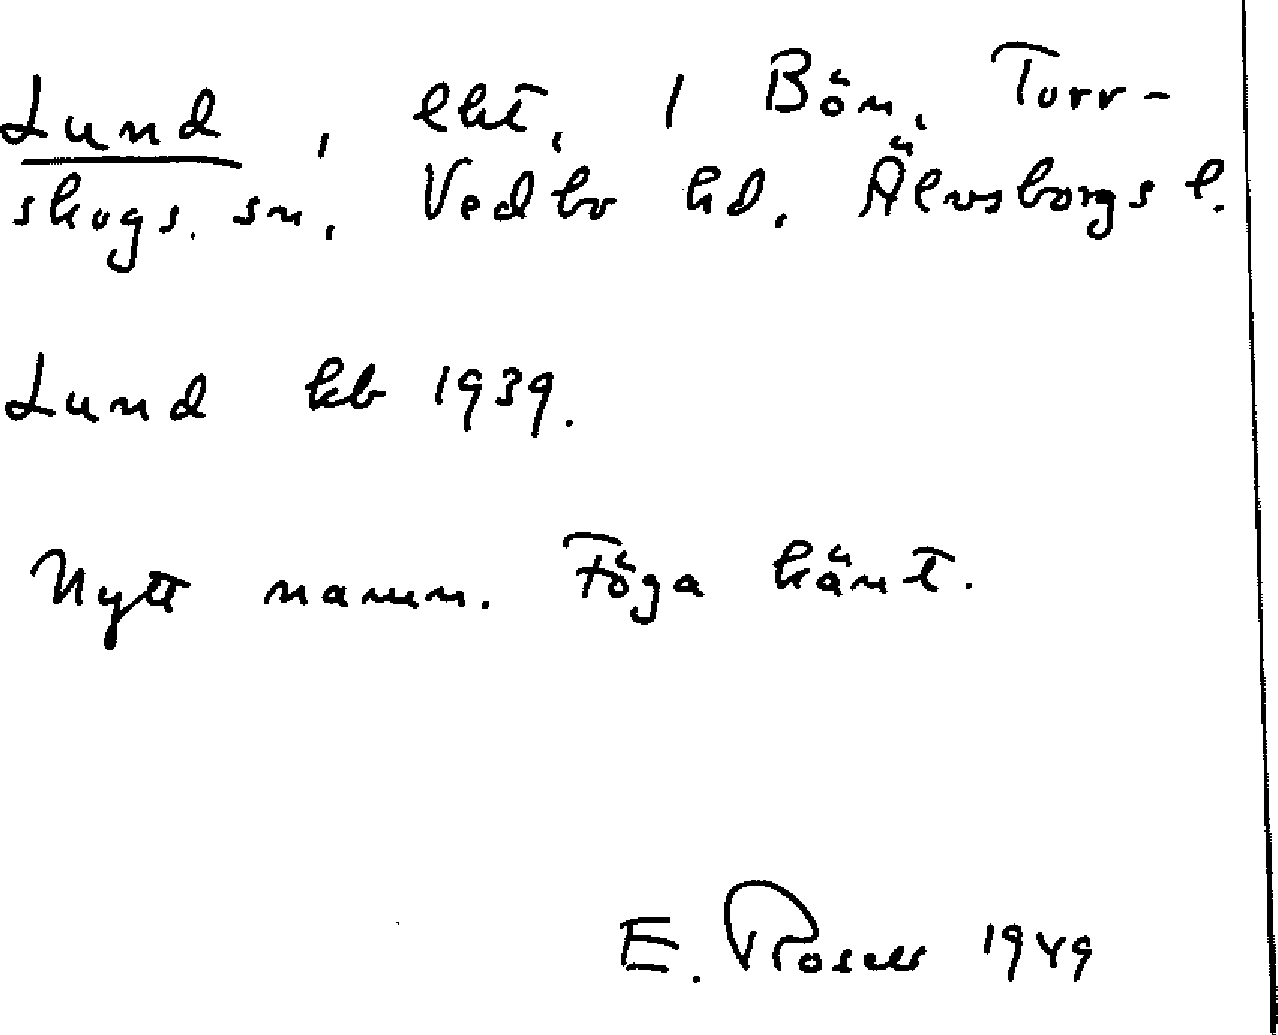 Lund, lht, 1 Bön, Torr-
skogs. sn, Vedbo hd. Älvsborgs l.
Lund kb 1939.
Nytt namn. Föga känt.
E. Rosell 1949